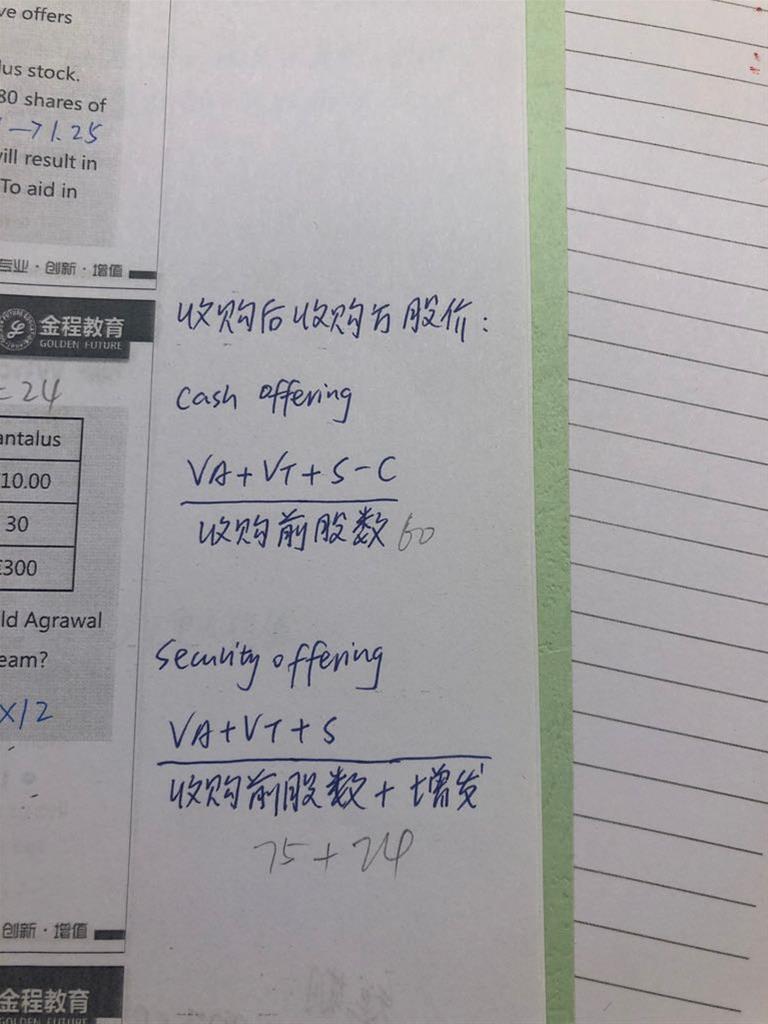 ve offers
lus stock.
80 shares of
→1.25
will result in
To aid in
专业·创新·增值
金程教育
GOLDEN FUTURE
= 24
antalus
10.00
30
£300
ld Agrawal
eam?
×12
创新·增值
金程教育
GOLDEN FUTURE
收购后收购方股价:
cash offering
VA+VT+S-C
收购前股数 60
security offering
VA+VT+S
收购前股数+增发
75+24